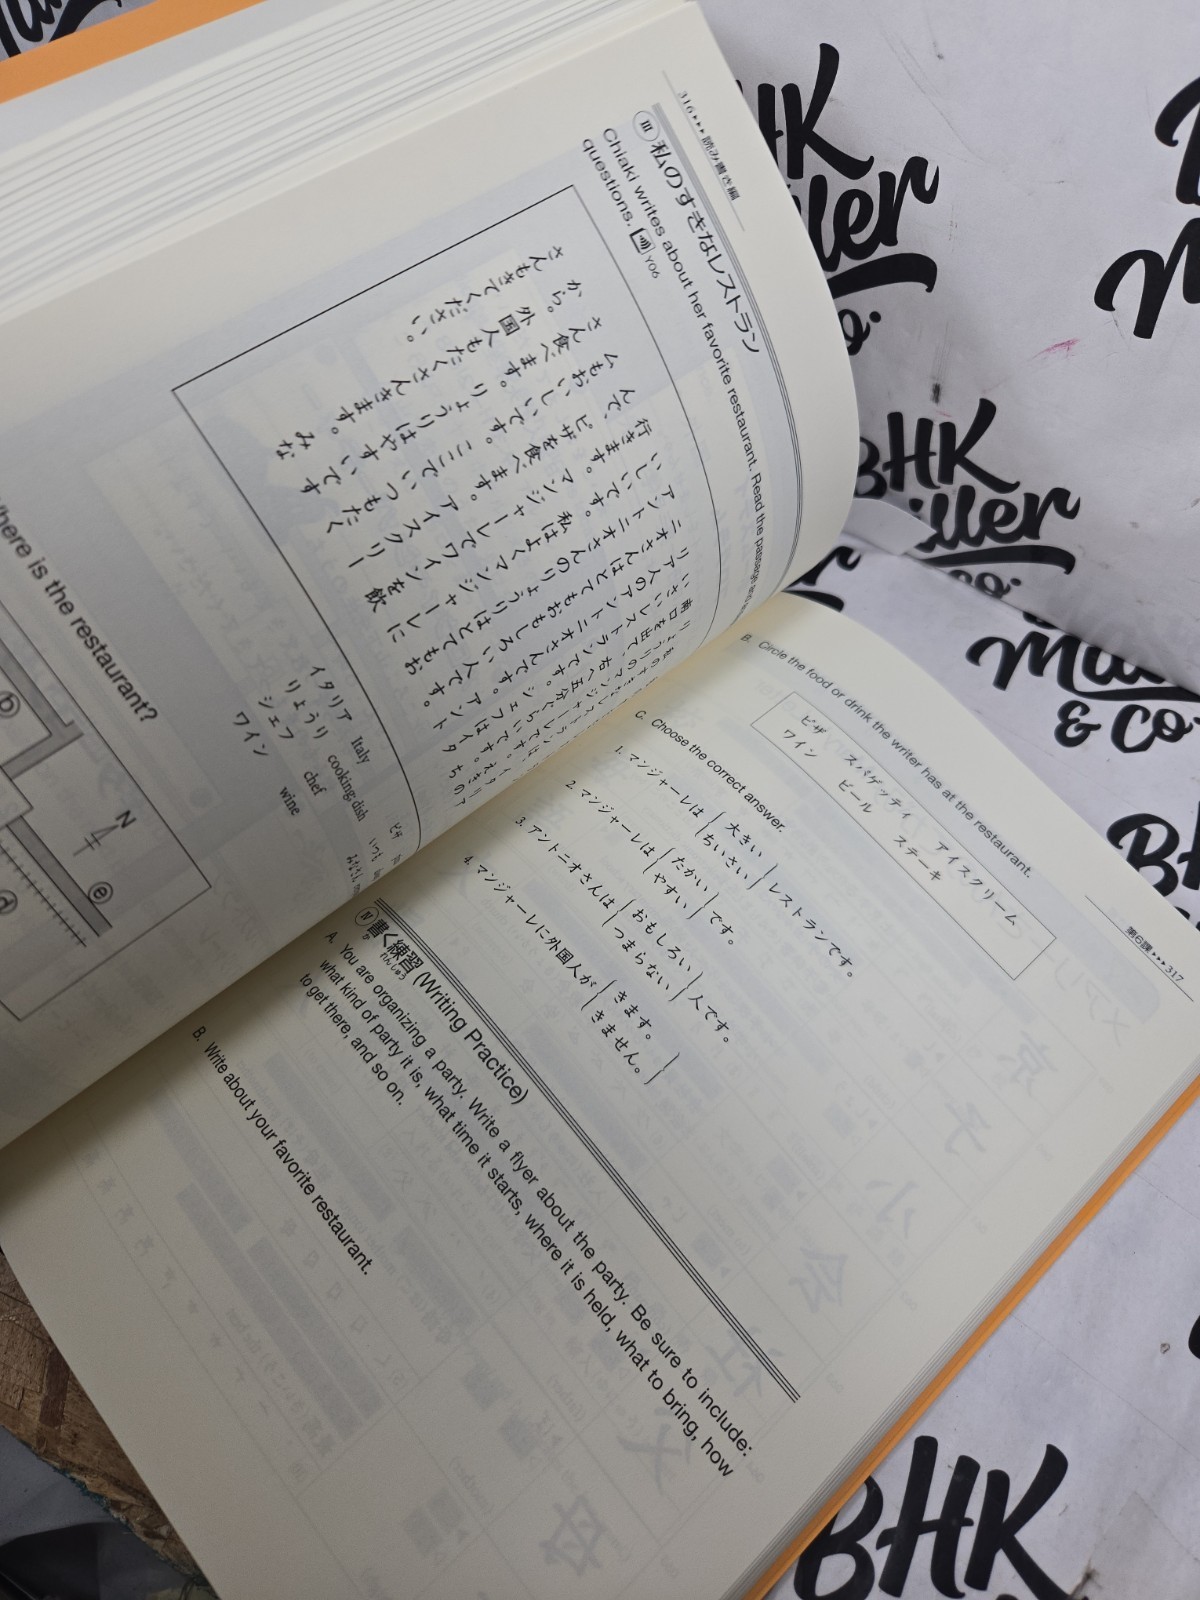 316 ▸▸▸ 読み書き編
III 私のすきなレストラン
Chiaki writes about her favorite restaurant. Read the passage and
questions. Y06
アントニオさんはとてもおもしろい人です。アント
ニオさんのりょうりはとてもお
いしいです。私はよくマンジャーレに
行きます。マンジャーレでワインを飲
んで、ピザを食べます。アイスクリー
ムもおいしいです。ここでいつもたく
さん食べます。りょうりはやすいです
から。外国人もたくさんきます。みな
さんもきてください。
イタリア Italy
りょうり cooking; dish
シェフ chef
ワイン wine
ピザ
いつも
みなさん
here is the restaurant?
N
b
e
d
第6課 ▸▸▸ 317
B. Circle the food or drink the writer has at the restaurant.
ピザ スパゲッティ アイスクリーム
ワイン ビール ステーキ
C. Choose the correct answer.
1. マンジャーレは { 大きい ちいさい } レストランです。
2. マンジャーレは { たかい やすい } です。
3. アントニオさんは { おもしろい つまらない } 人です。
4. マンジャーレに外国人が { きます。 きません。 }
IV 書く練習 (Writing Practice)
か れんしゅう
A. You are organizing a party. Write a flyer about the party. Be sure to include:
what kind of party it is, what time it starts, where it is held, what to bring, how
to get there, and so on.
B. Write about your favorite restaurant.
BHK
Miller
& Co.